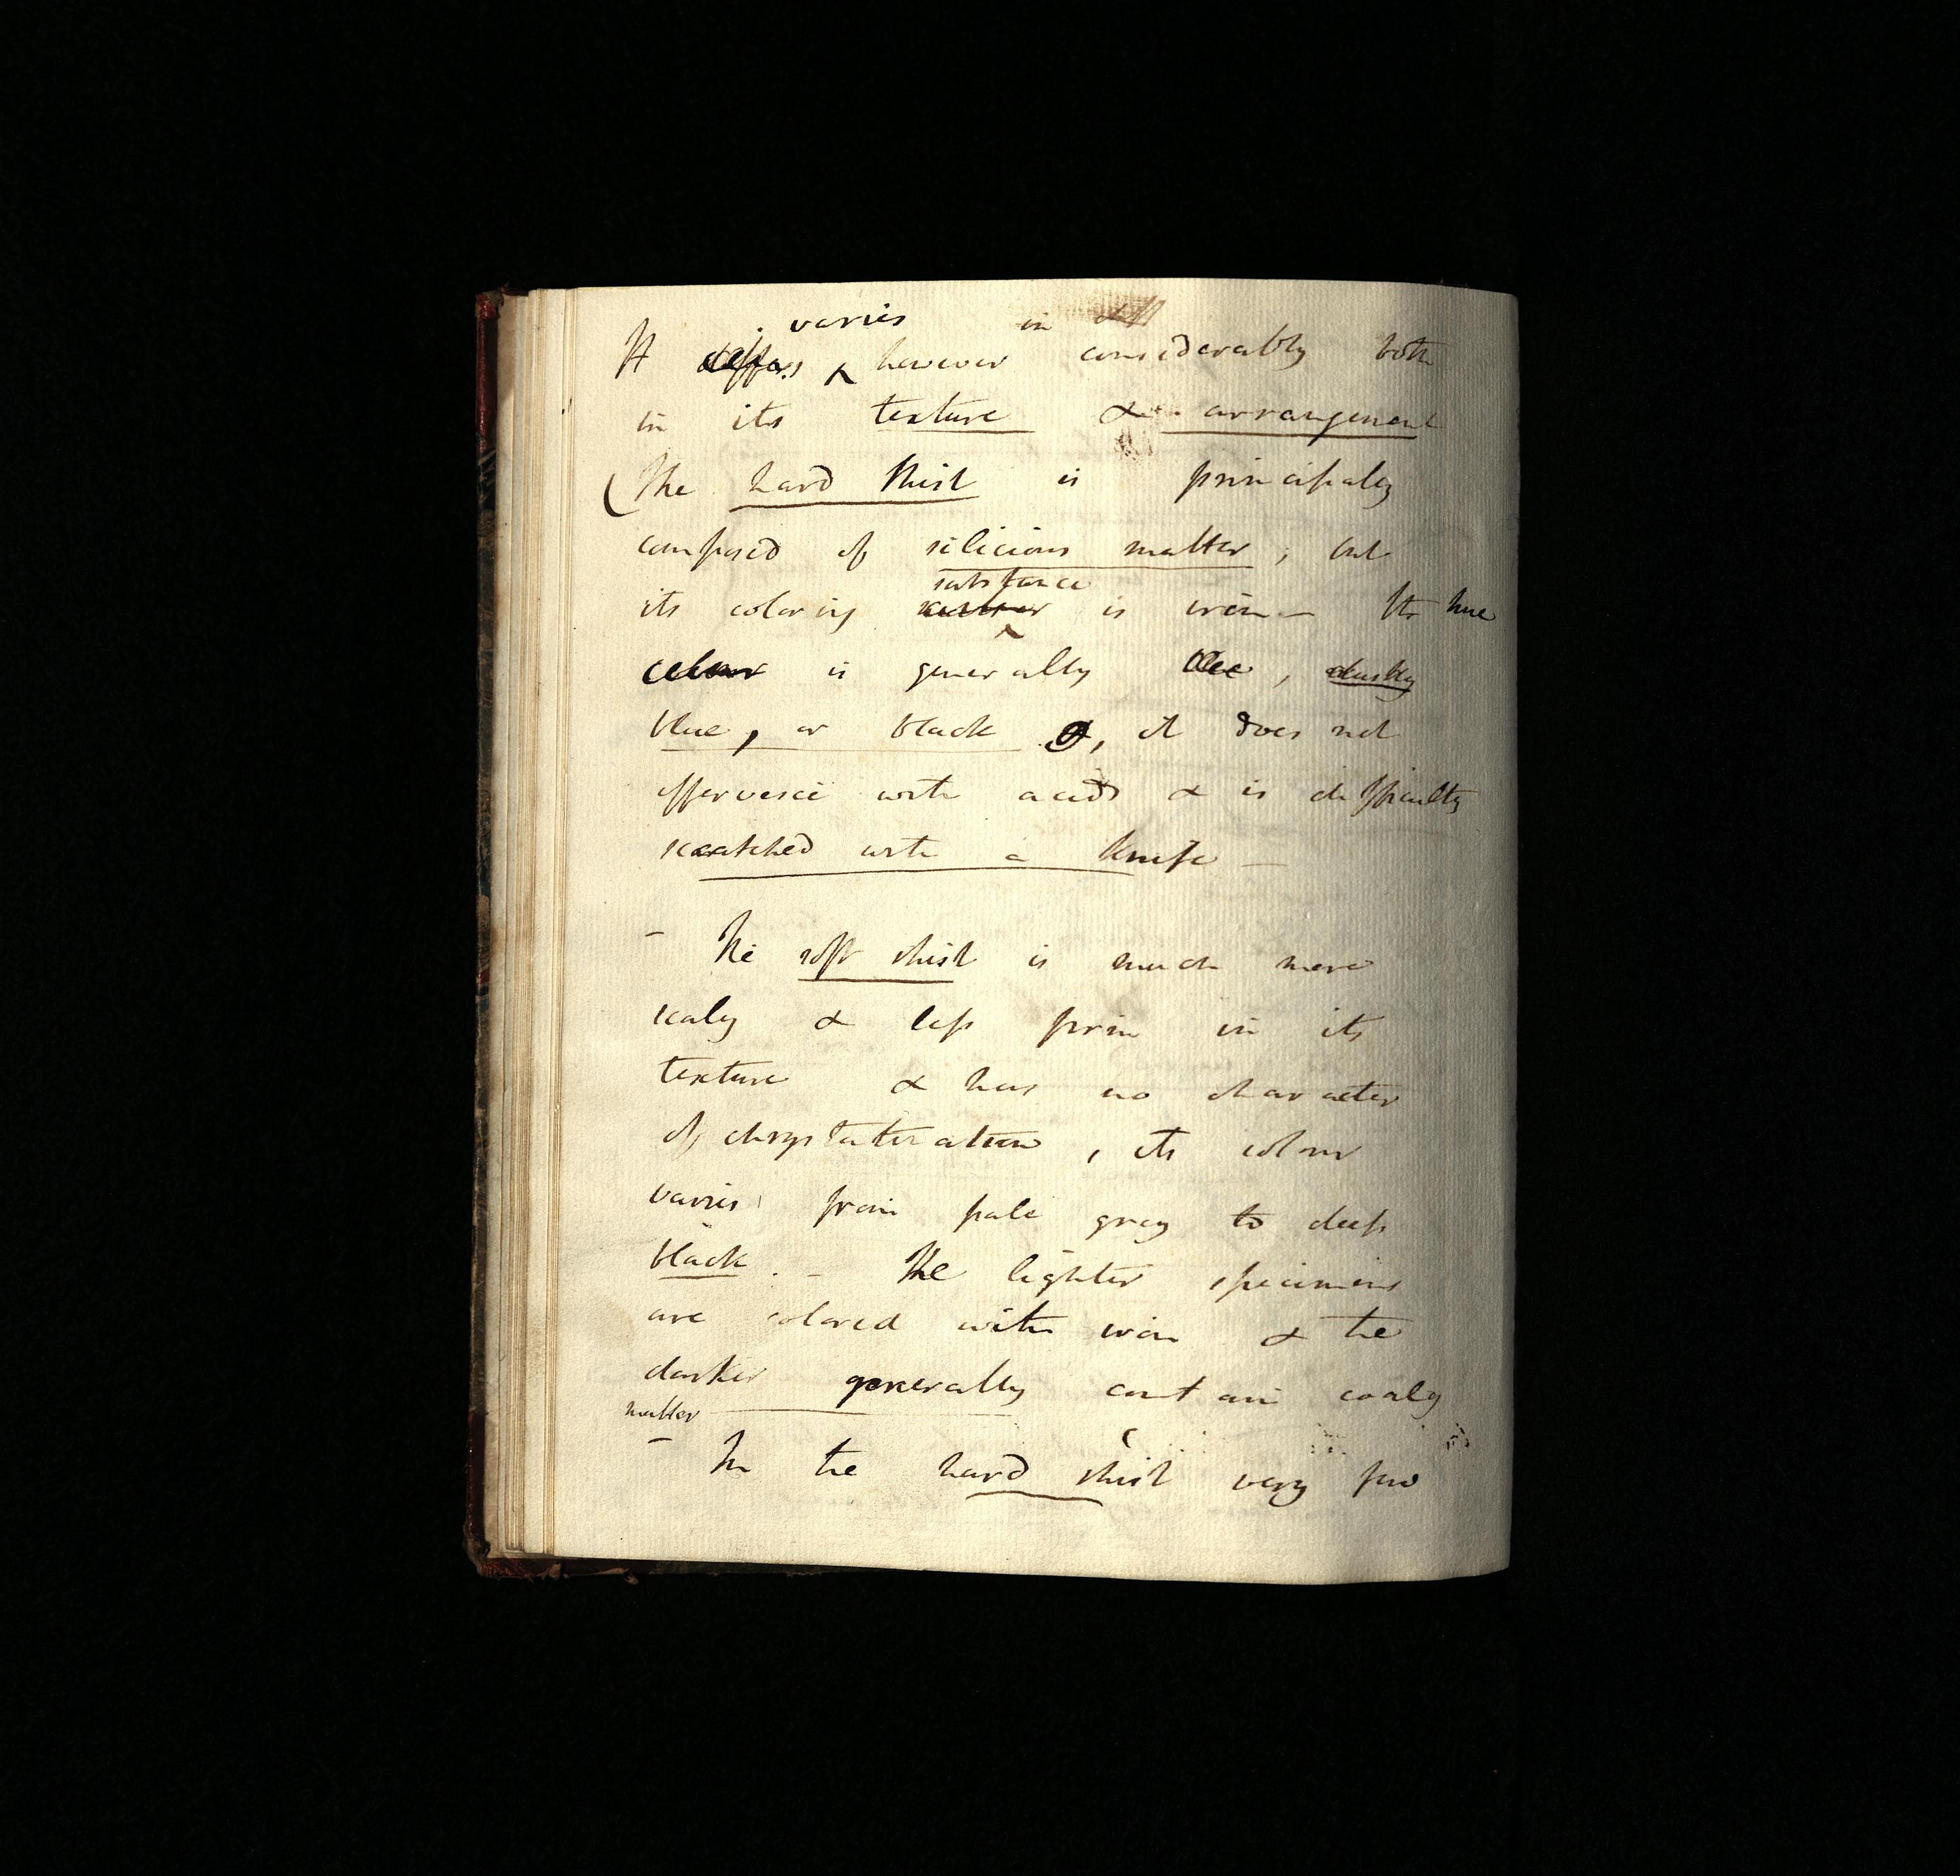 varies in
It differs however considerably both
in its texture & arrangement
(The hard shist is principaly
composed of silicious matter; but
substance
its coloring matter is iron — Its hue
colour is generally blue, dusky
blue, or black, it does not
effervesce with acids & is difficulty
scratched with a knife —
— The soft shist is much more
scaly & less firm in its
texture & has no character
of chrystallization, its colour
varies from pale gray to deep
black. — The lighter specimens
are colored with iron & the
darker generally contain coaly
matter
— In the hard shist very few